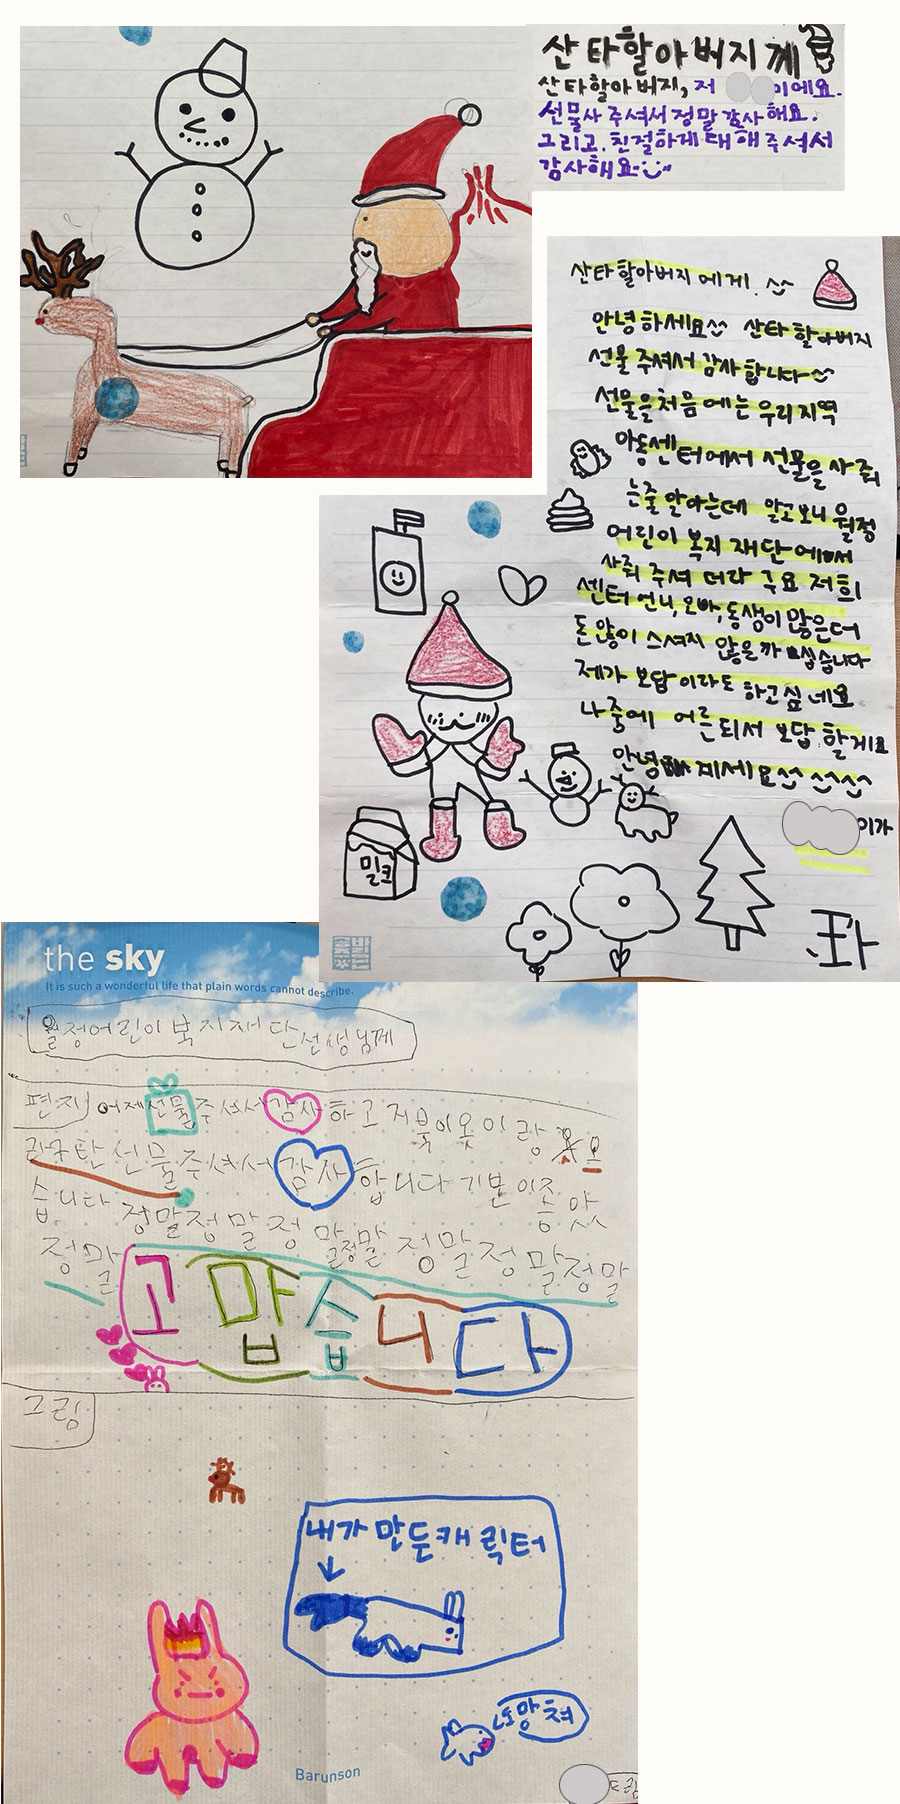 산타할아버지께
산타할아버지, 저 이에요.
선물사 주셔서 정말 감사해요.
그리고, 친절하게 대해 주셔서
감사해요
산타할아버지에게.
안녕하세요 산타할아버지
선물 주셔서 감사합니다
선물을 처음에는 우리지역
아동센터에서 선물을 사줘
는줄 알아는데 알고보니 월정
어린이 복지 재단에서
사줘 주셔 더라구요 저희
센터 언니,오빠,동생이 많은더
돈 많이 스셔지 않을까 십습니다
제가 보답이라도 하고싶네요
나중에 어른되서 보답할게요
안녕히 계세요
이가
밀크
the sky
It is such a wonderful life that plain words cannot describe.
월정어린이복지재단선생님께
편지 어제선물주셔서 감사하고 저 북이옷이랑
선물주셔서 감사합니다 기분이조
습니다. 정말정말정말정말정말정말정말
정말
고맙습니다
그림
내가 만든캐릭터
도망쳐
Barunson
드림